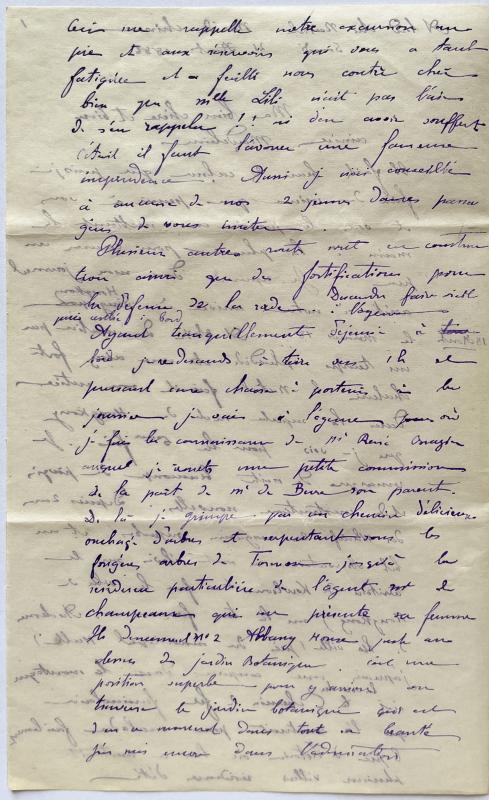 Ceci me rappelle notre excursion
pic et aux réservoirs qui vous a tant
fatiguée et a failli nous coûter cher
bien que Mlle Lili n'ait pas l'air
de s'en rappeler !! ni d'en avoir souffert
c'était il faut l'avouer une fameuse
imprudence Aussi j' conseillé
à aucune de nos 2 jeunes dames passa
gères de nous imiter.
Plusieurs autres sont en construc
tion ainsi que des fortifications pour
la défense de la rade. Descendre faire visite
puis rentré à bord
Ayant tranquillement déjeuné à
bord je redescends à terre vers 1h et
prenant une chaise à porteurs à la
je vais à l'agence où
je fais la connaissance de Mr René
auquel j'avais une petite commission
de la part de Mr de Bure son parent.
De là je grimpe par un chemin délicieux
ombragé d'arbres et serpentant sous les
fougères arbres de Formose jusqu'à la
résidence particulière de l'agent Mr de
Champeaux qui me présente sa femme
Ils demeurent No 2 Albany House juste au
dessus du jardin Botanique. C'est une
position superbe pour y arriver on
traverse le jardin botanique qui est
en ce moment dans tout sa beauté
j'